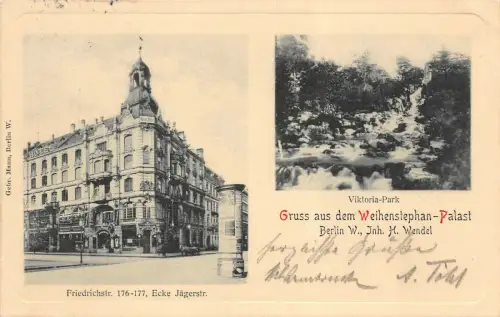 Gebr. Mann, Berlin W.
Viktoria-Park
Gruss aus dem Weihenstephan-Palast
Berlin W., Inh. H. Wendel
Friedrichstr. 176-177, Ecke Jägerstr.
Herzliche Grüße
A.